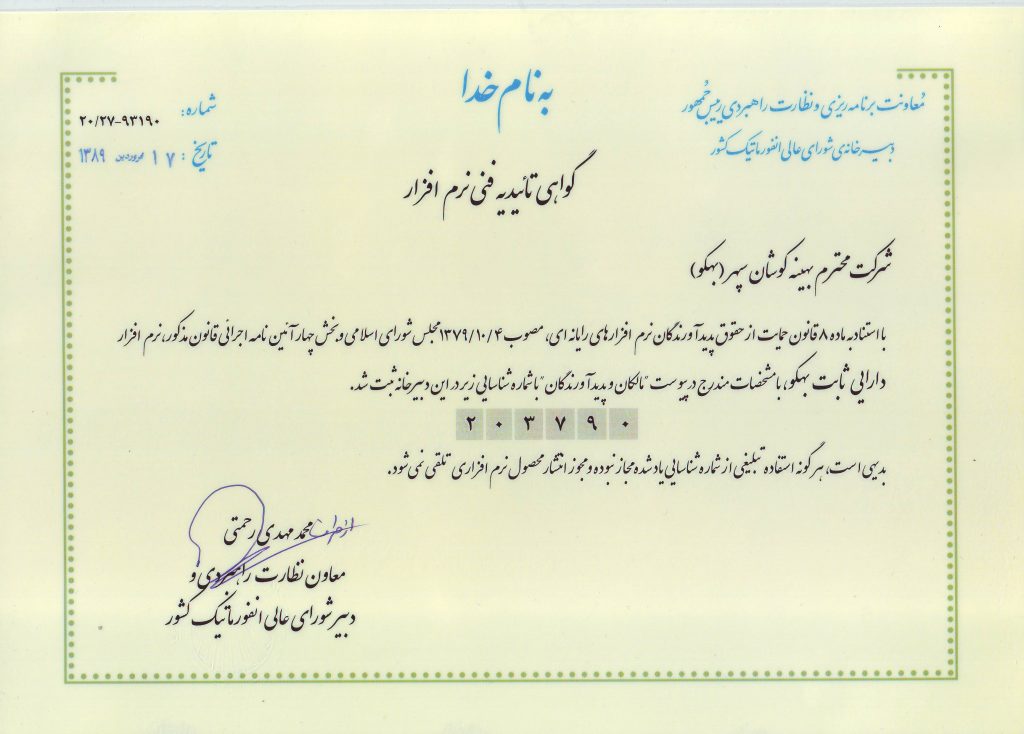 به نام خدا
معاونت برنامه ریزی و نظارت راهبردی رییس جمهور
دبیرخانه‌ی شورای عالی انفورماتیک کشور
شماره: ۲۰/۲۷-۹۳۱۹۰
تاریخ: ۱۷ فروردین ۱۳۸۹
گواهی تائیدیه فنی نرم افزار
شرکت محترم بهینه کوشان سپهر (بهکو)
با استناد به ماده ۸ قانون حمایت از حقوق پدیدآورندگان نرم افزارهای رایانه ای، مصوب ۱۳۷۹/۱۰/۴ مجلس شورای اسلامی و بخش چهار آئین نامه اجرائی قانون مذکور، نرم افزار
دارایی ثابت بهکو، با مشخصات مندرج در پیوست "مالکان و پدیدآورندگان" با شماره شناسایی زیر در این دبیرخانه ثبت شد.
۲۰۳۷۹۰
بدیهی است، هرگونه استفاده تبلیغی از شماره شناسایی یاد شده مجاز نبوده و مجوز انتشار محصول نرم افزاری تلقی نمی شود.
از طرف محمد مهدی رحمتی
معاون نظارت راهبردی و
دبیر شورای عالی انفورماتیک کشور